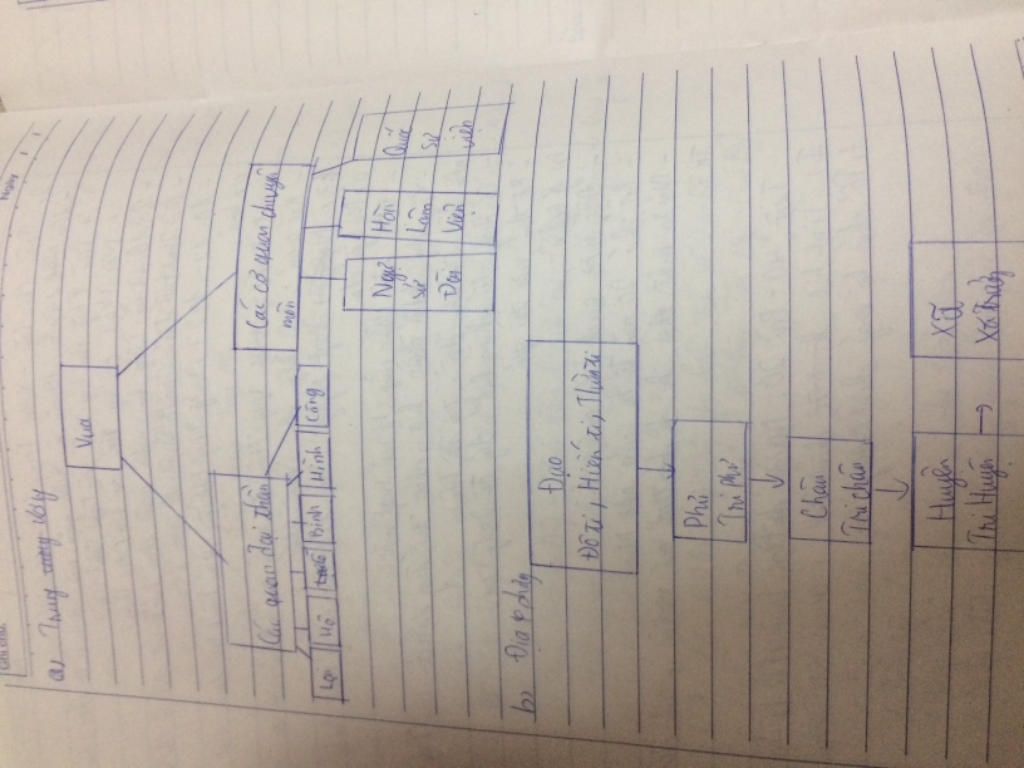 a, Trung ương
Vua
Các quan đại thần
Các cơ quan chuyên
môn
Lại
Hộ
Binh
Hình
Công
Ngự
sử
Đài
Hàn
Lâm
Viện
Quốc
sử
viện
b, Địa phương
Đạo
Đô ti, Hiến ti, Thừa ti
Phủ
Tri Phủ
Châu
Tri châu
Huyện
Tri Huyện →
Xã
Xã trưởng